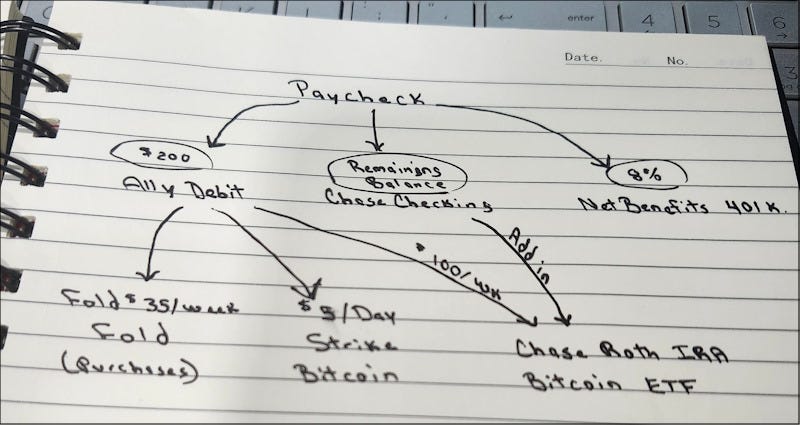 enter
4
5
6
Date.
No.
Paycheck
$200
Ally Debit
Remaining
Balance
Chase Checking
8%
NetBenefits 401K.
$100/wk
Add in
Fold $35/week
Fold
(Purchases)
$5/Day
Strike
Bitcoin
Chase Roth IRA
Bitcoin ETF